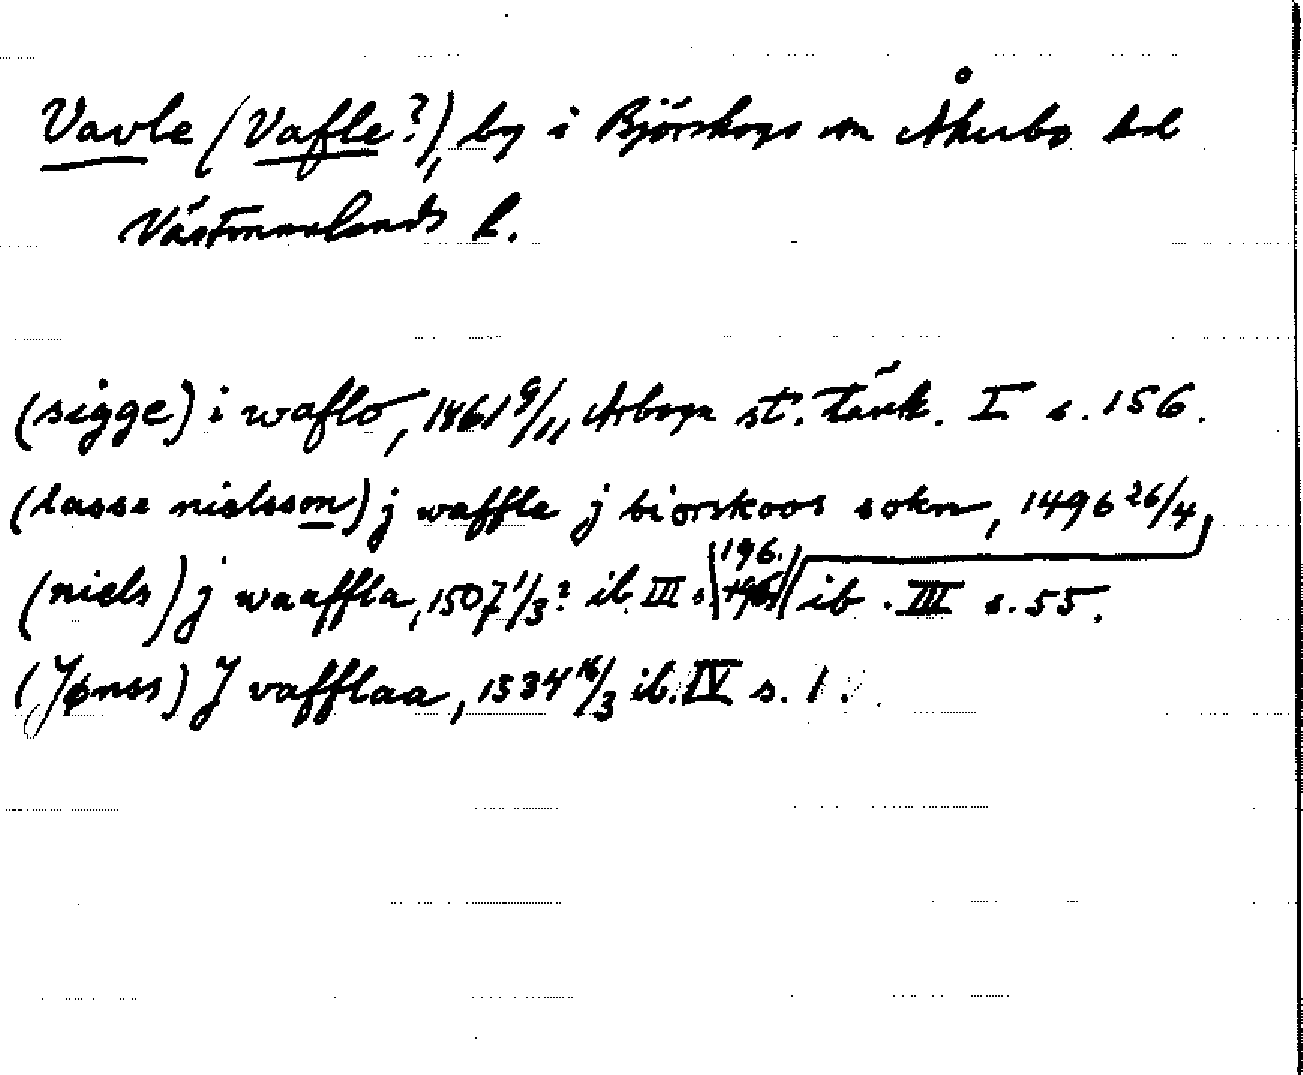 Vavle (Vafle?), by i Björskogs sn Åkerbo hd
Västmanlands l.
(sigge) i waflo, 1461 9/11, Arboga st. tänk. I s. 156.
(lasse nielsson) j waffle j biorskoos sokn, 1496 26/4,
ib. III s. 55.
(niels) j waaffla, 1507 1/3? ib. III s. 196.
(Jønss) J vafflaa, 1534 16/3 ib. IV s. 1.